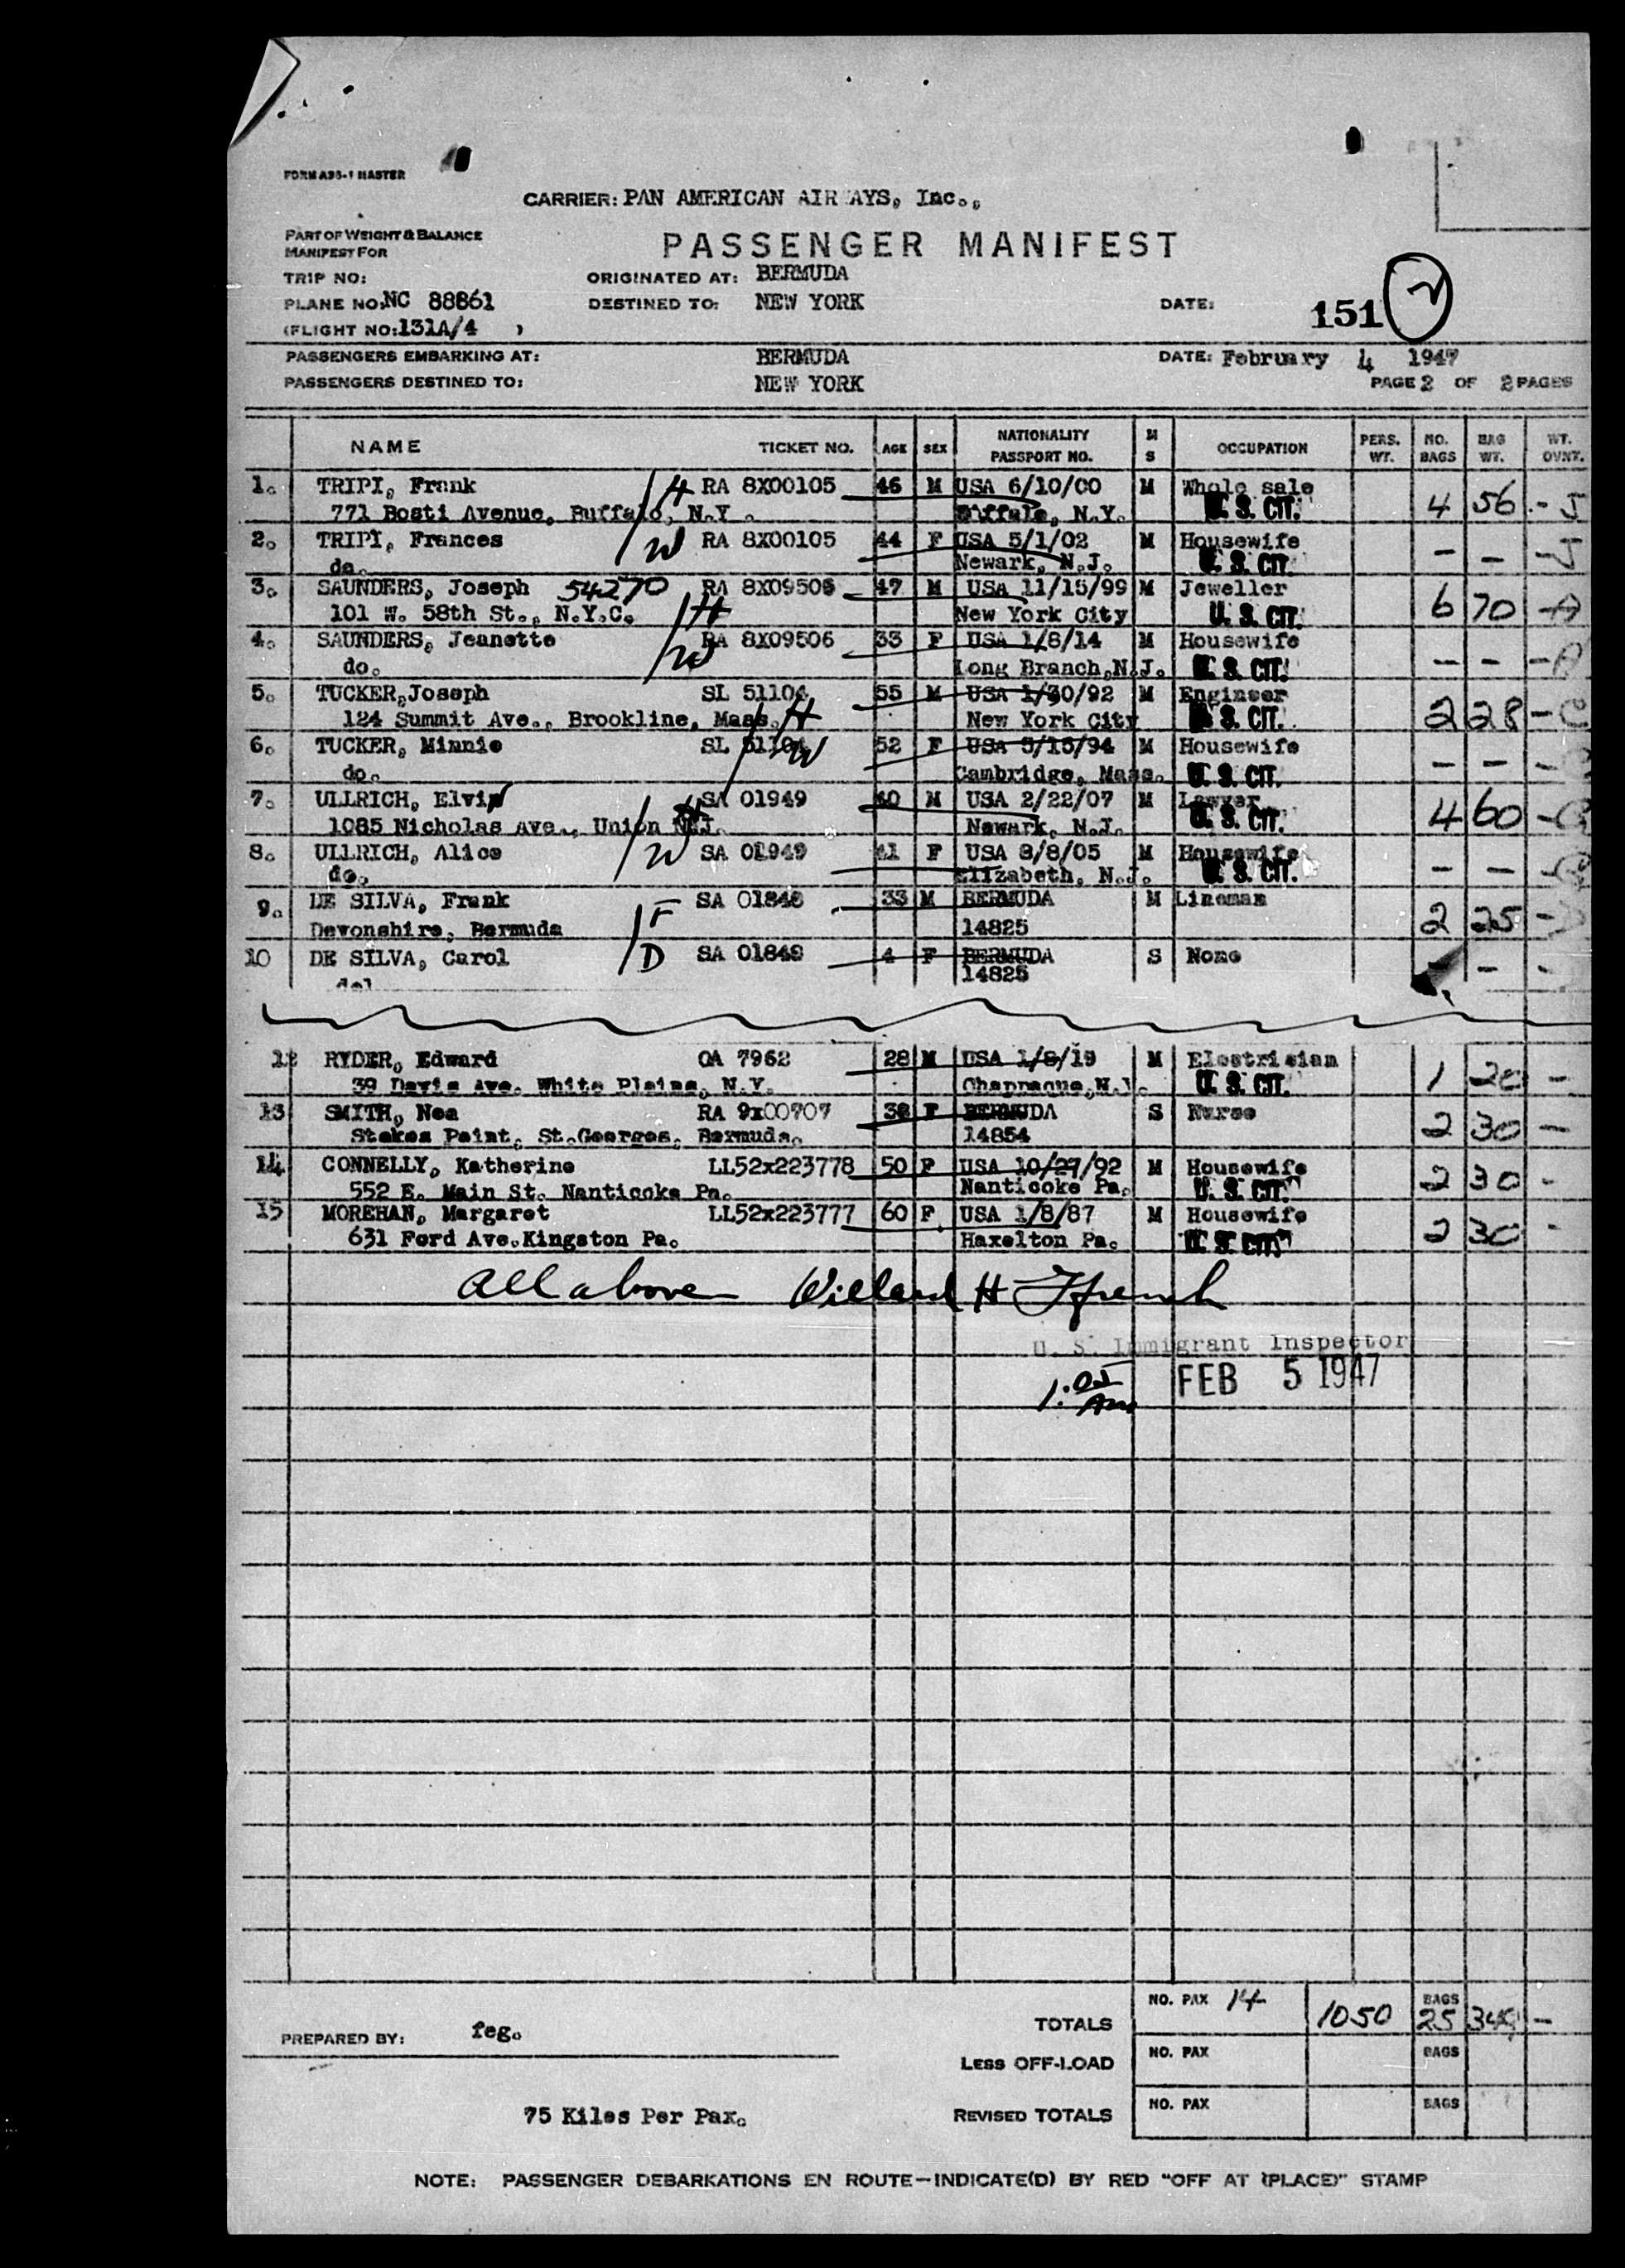 FORM A95-1 MASTER
CARRIER: PAN AMERICAN AIR AYS, Inc.,
PART OF WEIGHT & BALANCE
MANIFEST FOR
PASSENGER MANIFEST
TRIP NO:
ORIGINATED AT: BERMUDA
PLANE NO: NC 88861
DESTINED TO: NEW YORK
DATE: 151 2
(FLIGHT NO: 131A/4 )
PASSENGERS EMBARKING AT: BERMUDA DATE: February 4 1947
PASSENGERS DESTINED TO: NEW YORK PAGE 2 OF 2 PAGES
NAME TICKET NO. AGE SEX NATIONALITY PASSPORT NO. M S OCCUPATION PERS. WT. NO. BAGS BAG WT. WT. OVNT.
1. TRIPI, Frank H RA 8X00105 46 M USA 6/10/00 M Whole sale 4 56 - J
771 Bosti Avenue, Buffalo, N.Y. Buffalo, N.Y. U. S. CIT.
2. TRIPI, Frances W RA 8X00105 44 F USA 5/1/02 M Housewife - - - J
do. Newark, N.J. U. S. CIT.
3. SAUNDERS, Joseph 54270 RA 8X09506 47 M USA 11/15/99 M Jeweller 6 70 - A
101 W. 58th St., N.Y.C. H New York City U. S. CIT.
4. SAUNDERS, Jeanette RA 8X09506 33 F USA 1/8/14 M Housewife - - - A
do. W Long Branch, N.J. U. S. CIT.
5. TUCKER, Joseph SL 51104 55 M USA 1/30/92 M Engineer 2 28 - C
124 Summit Ave., Brookline, Mass. H New York City U. S. CIT.
6. TUCKER, Minnie SL 51104 W 52 F USA 5/15/94 M Housewife - - -
do. Cambridge, Mass. U. S. CIT.
7. ULLRICH, Elvin SA 01949 40 M USA 2/22/07 M Lawyer 4 60 - G
1085 Nicholas Ave., Union N.J. H Newark, N.J. U. S. CIT.
8. ULLRICH, Alice W SA 01949 41 F USA 8/8/05 M Housewife - - - G
do. Elizabeth, N.J. U. S. CIT.
9. DE SILVA, Frank F SA 01848 33 M BERMUDA M Lineman 2 25 -
Devonshire, Bermuda 14825
10 DE SILVA, Carol D SA 01849 4 F BERMUDA S None - -
14825
12 RYDER, Edward OA 7962 28 M USA 1/8/19 M Electrician 1 20 -
39 Davis Ave. White Plains, N.Y. Chappaque, N.Y. U. S. CIT.
13 SMITH, Nea RA 9x00707 38 F BERMUDA S Nurse 2 30 -
Stokes Point, St.Georges, Bermuda. 14854
14 CONNELLY, Katherine LL52x223778 50 F USA 10/27/92 M Housewife 2 30 -
552 E. Main St. Nanticoke Pa. Nanticoke Pa. U. S. CIT.
15 MOREHAN, Margaret LL52x223777 60 F. USA 1/8/87 M Housewife 2 30 -
631 Ford Ave.Kingston Pa. Haxelton Pa. U. S. CIT.
All above Willard H Ffrench
U. S. Immigrant Inspector
1:05 Am FEB 5 1947
TOTALS NO. PAX 14 1050 BAGS 25 349 -
PREPARED BY: feg.
LESS OFF-LOAD NO. PAX BAGS
75 Kilos Per Pax. REVISED TOTALS NO. PAX BAGS
NOTE: PASSENGER DEBARKATIONS EN ROUTE—INDICATE(D) BY RED "OFF AT (PLACE)" STAMP